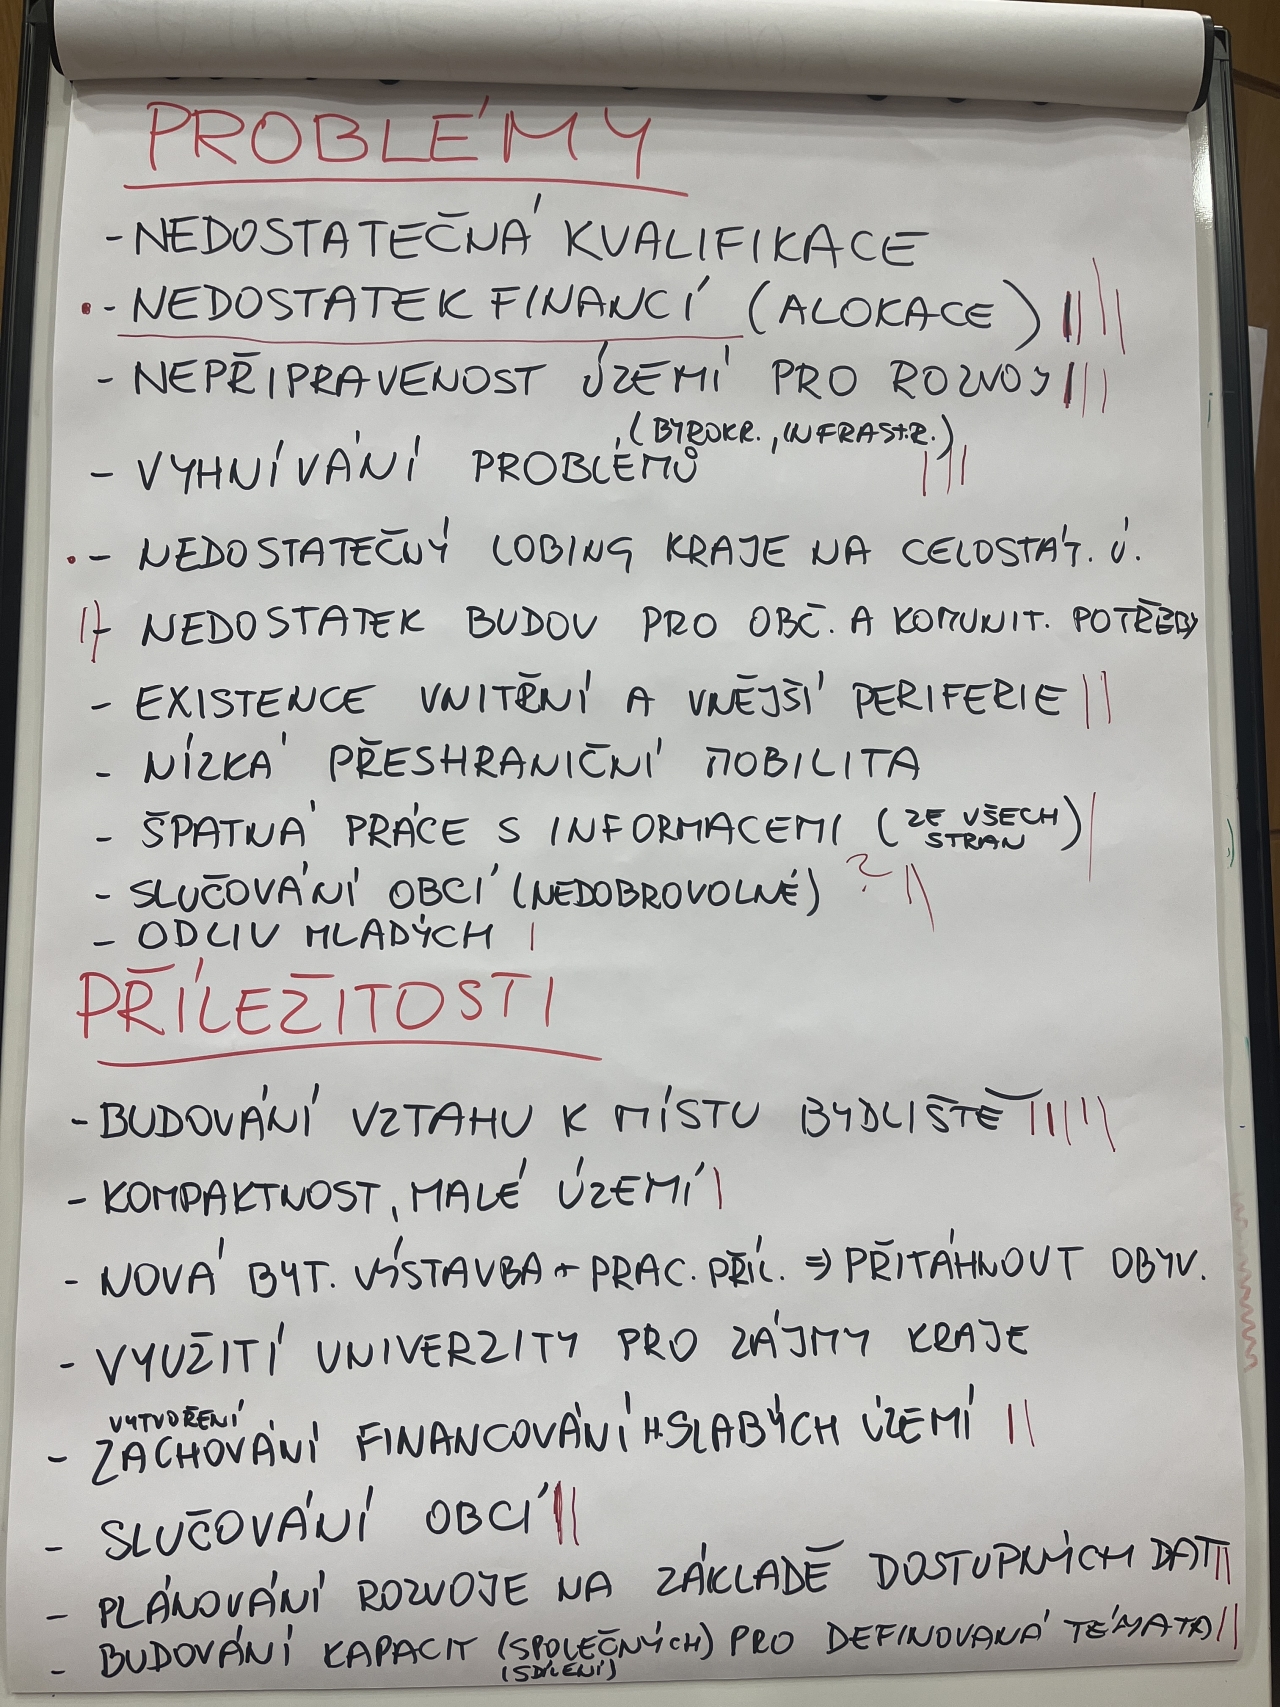 PROBLÉMY
- NEDOSTATEČNÁ KVALIFIKACE
- NEDOSTATEK FINANCÍ (ALOKACE)
- NEPŘIPRAVENOST ÚZEMÍ PRO ROZVOJ
(BYROKR., INFRASTR.)
- VYHNÍVÁNÍ PROBLÉMŮ
- NEDOSTATEČNÝ LOBING KRAJE NA CELOSTÁT. Ú.
- NEDOSTATEK BUDOV PRO OBČ. A KOMUNIT. POTŘEBY
- EXISTENCE VNITŘNÍ A VNĚJŠÍ PERIFERIE
- NÍZKÁ PŘESHRANIČNÍ MOBILITA
- ŠPATNÁ PRÁCE S INFORMACEMI (ZE VŠECH STRAN)
- SLUČOVÁNÍ OBCÍ (NEDOBROVOLNÉ) ?
- ODLIV MLADÝCH
PŘÍLEŽITOSTI
- BUDOVÁNÍ VZTAHU K MÍSTU BYDLIŠTĚ
- KOMPAKTNOST, MALÉ ÚZEMÍ
- NOVÁ BYT. VÝSTAVBA + PRAC. PŘÍL. ⇒ PŘITÁHNOUT OBYV.
- VYUŽITÍ UNIVERZITY PRO ZÁJMY KRAJE
VYTVOŘENÍ
- ZACHOVÁNÍ FINANCOVÁNÍ H. SLABÝCH ÚZEMÍ
- SLUČOVÁNÍ OBCÍ
- PLÁNOVÁNÍ ROZVOJE NA ZÁKLADĚ DOSTUPNÝCH DAT
- BUDOVÁNÍ KAPACIT (SPOLEČNÝCH) PRO DEFINOVANÁ TÉMATA
(SDÍLENÍ)